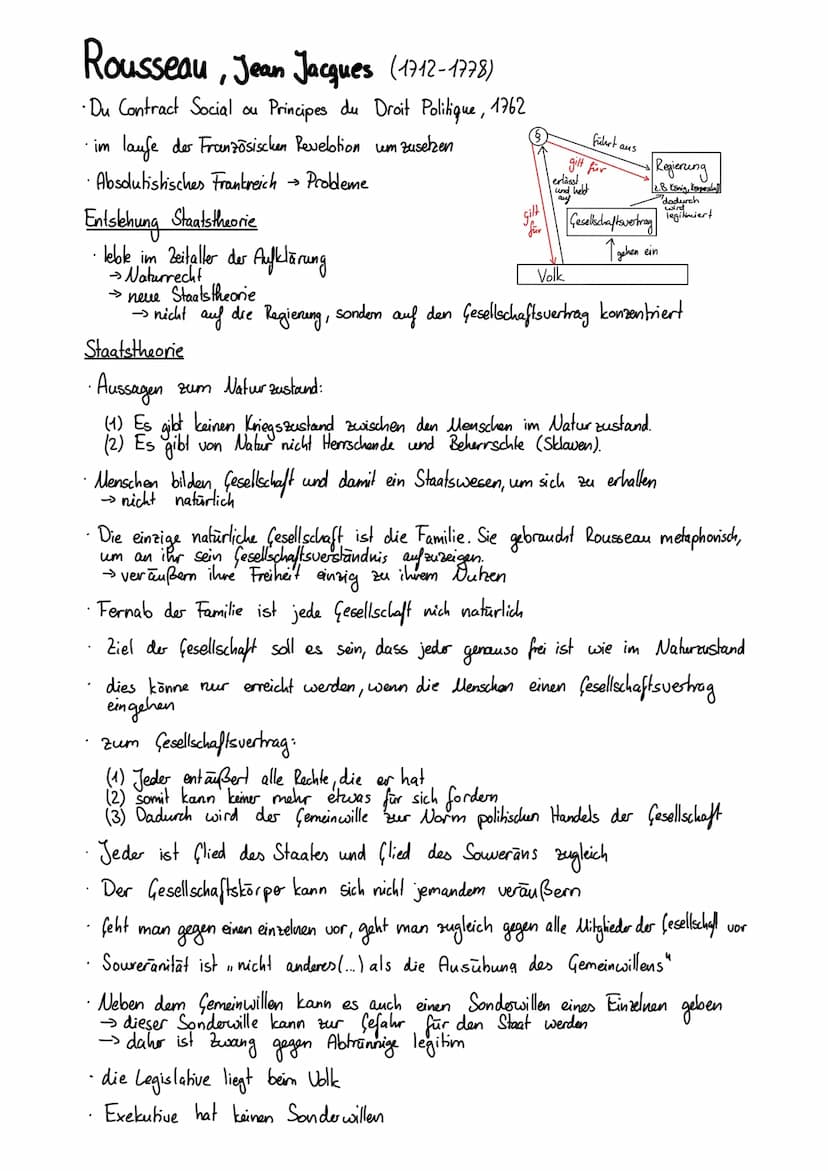 Rousseau, Jean Jacques (1712-1778)
· Du Contract Social ou Principes du Droit Politique, 1762
· im laufe der Französischen Revelotion umzusetzen
· Absolutistisches Frankreich → Probleme
§
führt aus
gilt für
Regierung
z.B. König, Körperschaft
erlässt
und hebt
auf
dadurch
wird
legitimiert
gilt
für
Gesellschaftsvertrag
gehen ein
Volk
Entstehung Staatstheorie
· lebte im Zeitalter der Aufklärung
→ Naturrecht
→ neue Staatstheorie
→ nicht auf die Regierung, sondern auf den Gesellschaftsvertrag konzentriert
Staatstheorie
· Aussagen zum Naturzustand:
(1) Es gibt keinen Kriegszustand zwischen den Menschen im Naturzustand.
(2) Es gibt von Natur nicht Herrschende und Beherrschte (Sklaven).
· Menschen bilden Gesellschaft und damit ein Staatswesen, um sich zu erhalten
→ nicht natürlich
· Die einzige natürliche Gesellschaft ist die Familie. Sie gebraucht Rousseau metaphorisch,
um an ihr sein Gesellschaftsverständnis aufzuzeigen.
→ veräußern ihre Freiheit einzig zu ihrem Nutzen
· Fernab der Familie ist jede Gesellschaft nich natürlich
· Ziel der Gesellschaft soll es sein, dass jeder genauso frei ist wie im Naturzustand
· dies könne nur erreicht werden, wenn die Menschen einen Gesellschaftsvertrag
eingehen
· zum Gesellschaftsvertrag:
(1) Jeder entäußert alle Rechte, die er hat
(2) somit kann keiner mehr etwas für sich fordern
(3) Dadurch wird der Gemeinwille zur Norm politischen Handels der Gesellschaft
· Jeder ist Glied des Staates und Glied des Souveräns zugleich
· Der Gesellschaftskörper kann sich nicht jemandem veräußern
· Geht man gegen einen einzelnen vor, geht man zugleich gegen alle Mitglieder der Gesellschaft vor
· Souveränität ist „nicht anderes (...) als die Ausübung des Gemeinwillens"
· Neben dem Gemeinwillen kann es auch einen Sonderwillen eines Einzelnen geben
→ dieser Sonderwille kann zur Gefahr für den Staat werden
→ daher ist Zwang gegen Abtrünnige legitim
· die Legislative liegt beim Volk
· Exekutive hat keinen Sonderwillen